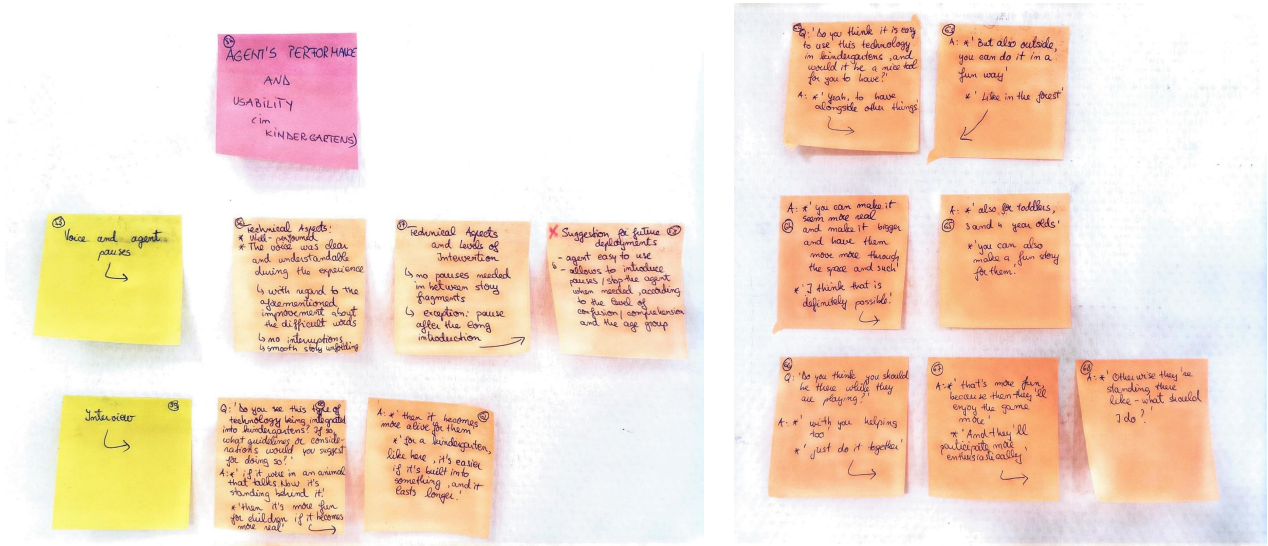 AGENT'S PERFORMANCE
AND
USABILITY
(in
KINDERGARTENS)
Voice and agent
pauses
Technical Aspects:
* Well-performed
* The voice was clear
and understandable
during the experience
↳ with regard to the
aforementioned
improvement about
the difficult words
↳ no interruptions
↳ smooth story unfolding
Technical Aspects
and Levels of
Intervention
↳ no pauses needed
in between story
fragments
↳ exception: pause
after the long
introduction
Suggestion for future
deployments
- agent easy to use
- allows to introduce
pauses / stop the agent
when needed, according
to the level of
confusion/comprehension
and the age group
Interview
Q: 'Do you see this type of
technology being integrated
into kindergartens? If so,
what guidelines or conside-
nations would you suggest
for doing so?'
A: * 'if it were in an animal
that talks. Now it's
standing behind it.'
* 'then it's more fun
for children if it becomes
more real'
A: * 'then it becomes
more alive for them'
* 'for a kindergarten,
like here, it's easier
if it's built into
something, and it
lasts longer.'
Q: 'Do you think it is easy
to use this technology
in kindergartens, and
would it be a nice tool
for you to have?'
A: * 'Yeah, to have
alongside other things'
63
A: * 'But also outside,
you can do it in a
fun way'
* 'Like in the forest'
64
A: * 'you can make it
seem more real
and make it bigger
and have them
move more through
the space and such'
* 'I think that is
definitely possible.'
65
A: * 'also for toddlers,
3 and 4 year olds'
* 'you can also
make a fun story
for them.'
66
Q: 'Do you think you should
be there while they
are playing?'
A: * 'with you helping
too'
* 'just do it together'
67
A: * 'that's more fun,
because then they'll
enjoy the game
more'
* 'And they'll
participate more
enthusiastically'
68
A: * 'Otherwise they're
standing there
like - what should
I do?'